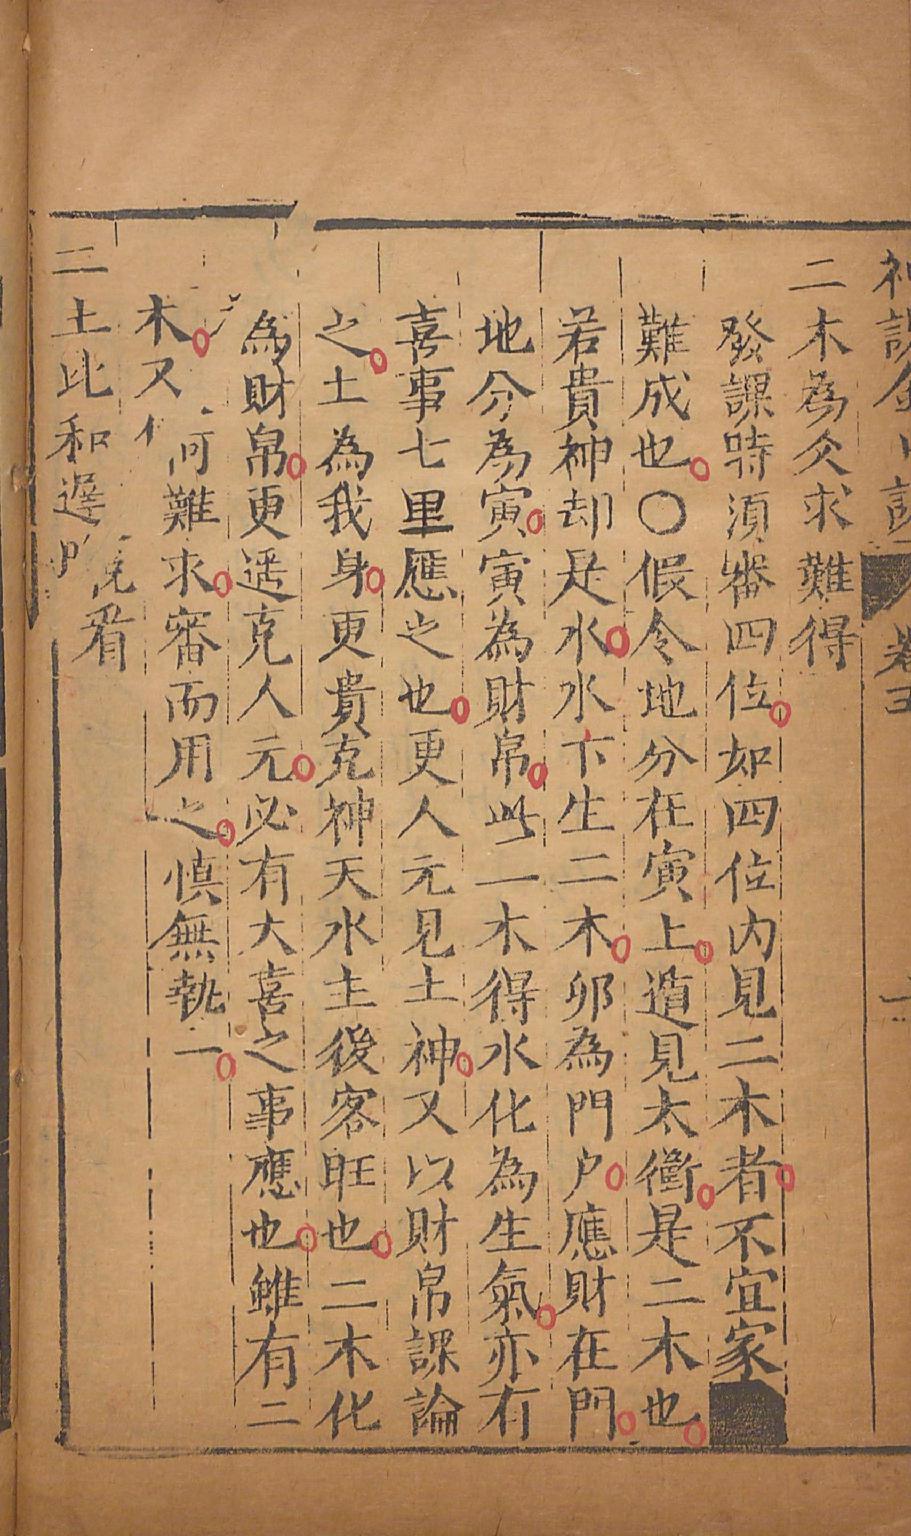 神課金口訣 卷三
二木為爻求難得
發課時須審四位如四位內見二木者不宜家
難成也○假令地分在寅上遁見太衝是二木也
若貴神却是水水下生二木卯為門户應財在門
地分為寅寅為財帛此一木得水化為生氣亦有
喜事七里應之也更人元見土神又以財帛課論
之土為我身更貴克神天水主後客旺也二木化
為財帛更遥克人元必有大喜之事應也雖有二
木又何難求審而用之慎無執一
二土比和遲晚看